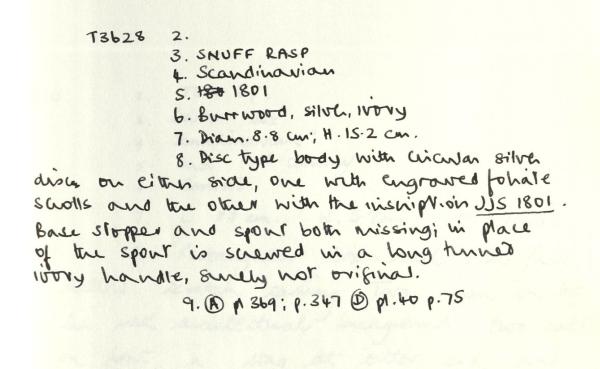 T3628 2.
3. SNUFF RASP
4. Scandinavian
5. 1801
6. Burrwood, silver, ivory
7. Diam. 8.8 cm; H. 15.2 cm.
8. Disc type body with circular silver
discs on either side, one with engraved foliate
scrolls and the other with the inscription JJS 1801.
Base stopper and spout both missing; in place
of the spout is screwed in a long turned
ivory handle, surely not original.
9. Ⓐ pl 369; p.347 Ⓓ pl.40 p.75